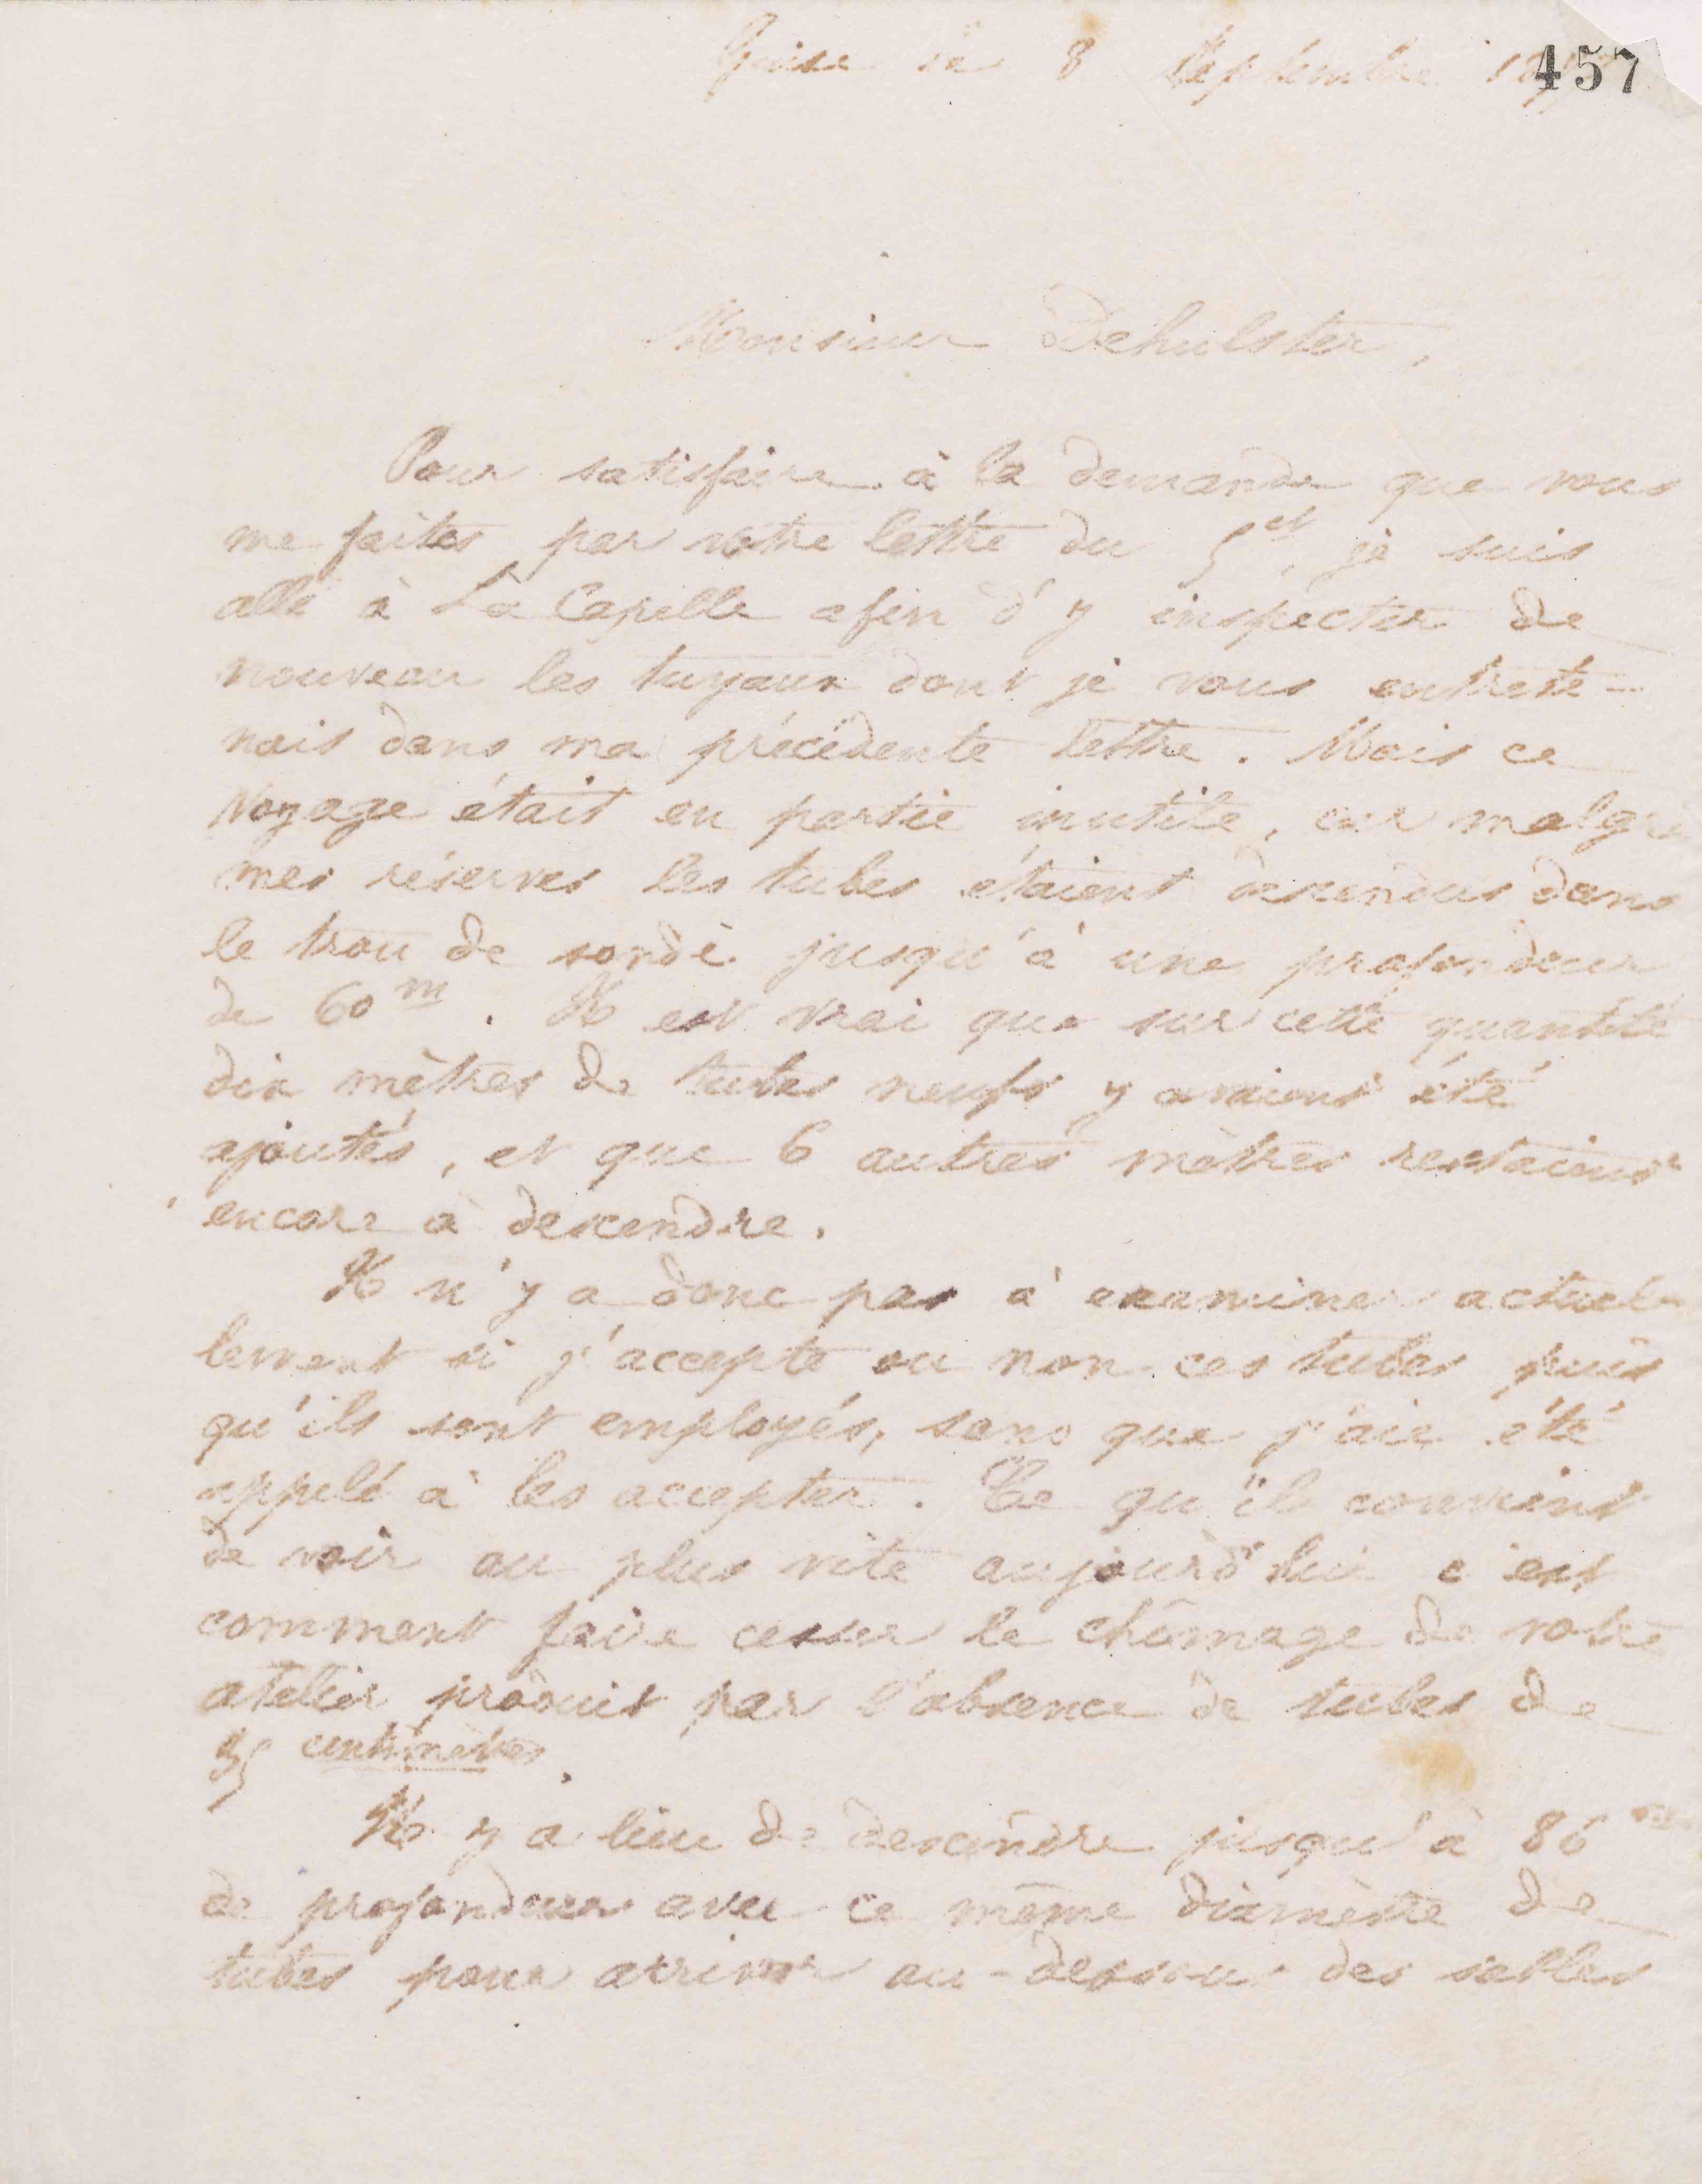 457
Guise le 8 Septembre
Monsieur Dehulster,
Pour satisfaire à la demande que vous
me faites par votre lettre du 5 ct, je suis
allé à La Capelle afin d'y inspecter de
nouveau les tuyaux dont je vous entrete-
nais dans ma précédente lettre. Mais ce
voyage était en partie inutile, car malgré
mes réserves les tubes étaient descendus dans
le trou de sonde jusqu'à une profondeur
de 60 m. Il est vrai que sur cette quantité
dix mètres de tubes neufs y avaient été
ajoutés, et que 6 autres mètres restaient
encore à descendre.
Il n'y a donc pas à examiner actuel-
lement si j'accepte ou non ces tubes puis
qu'ils sont employés, sans que j'aie été
appelé à les accepter. Ce qu'il convient
de voir au plus vite aujourd'hui c'est
comment faire cesser le chômage de votre
atelier produit par l'absence de tubes de
centimètres.
Il y a lieu de descendre jusqu'à 86
de profondeur avec ce même diamètre de
tubes pour arriver au-dessous des sables